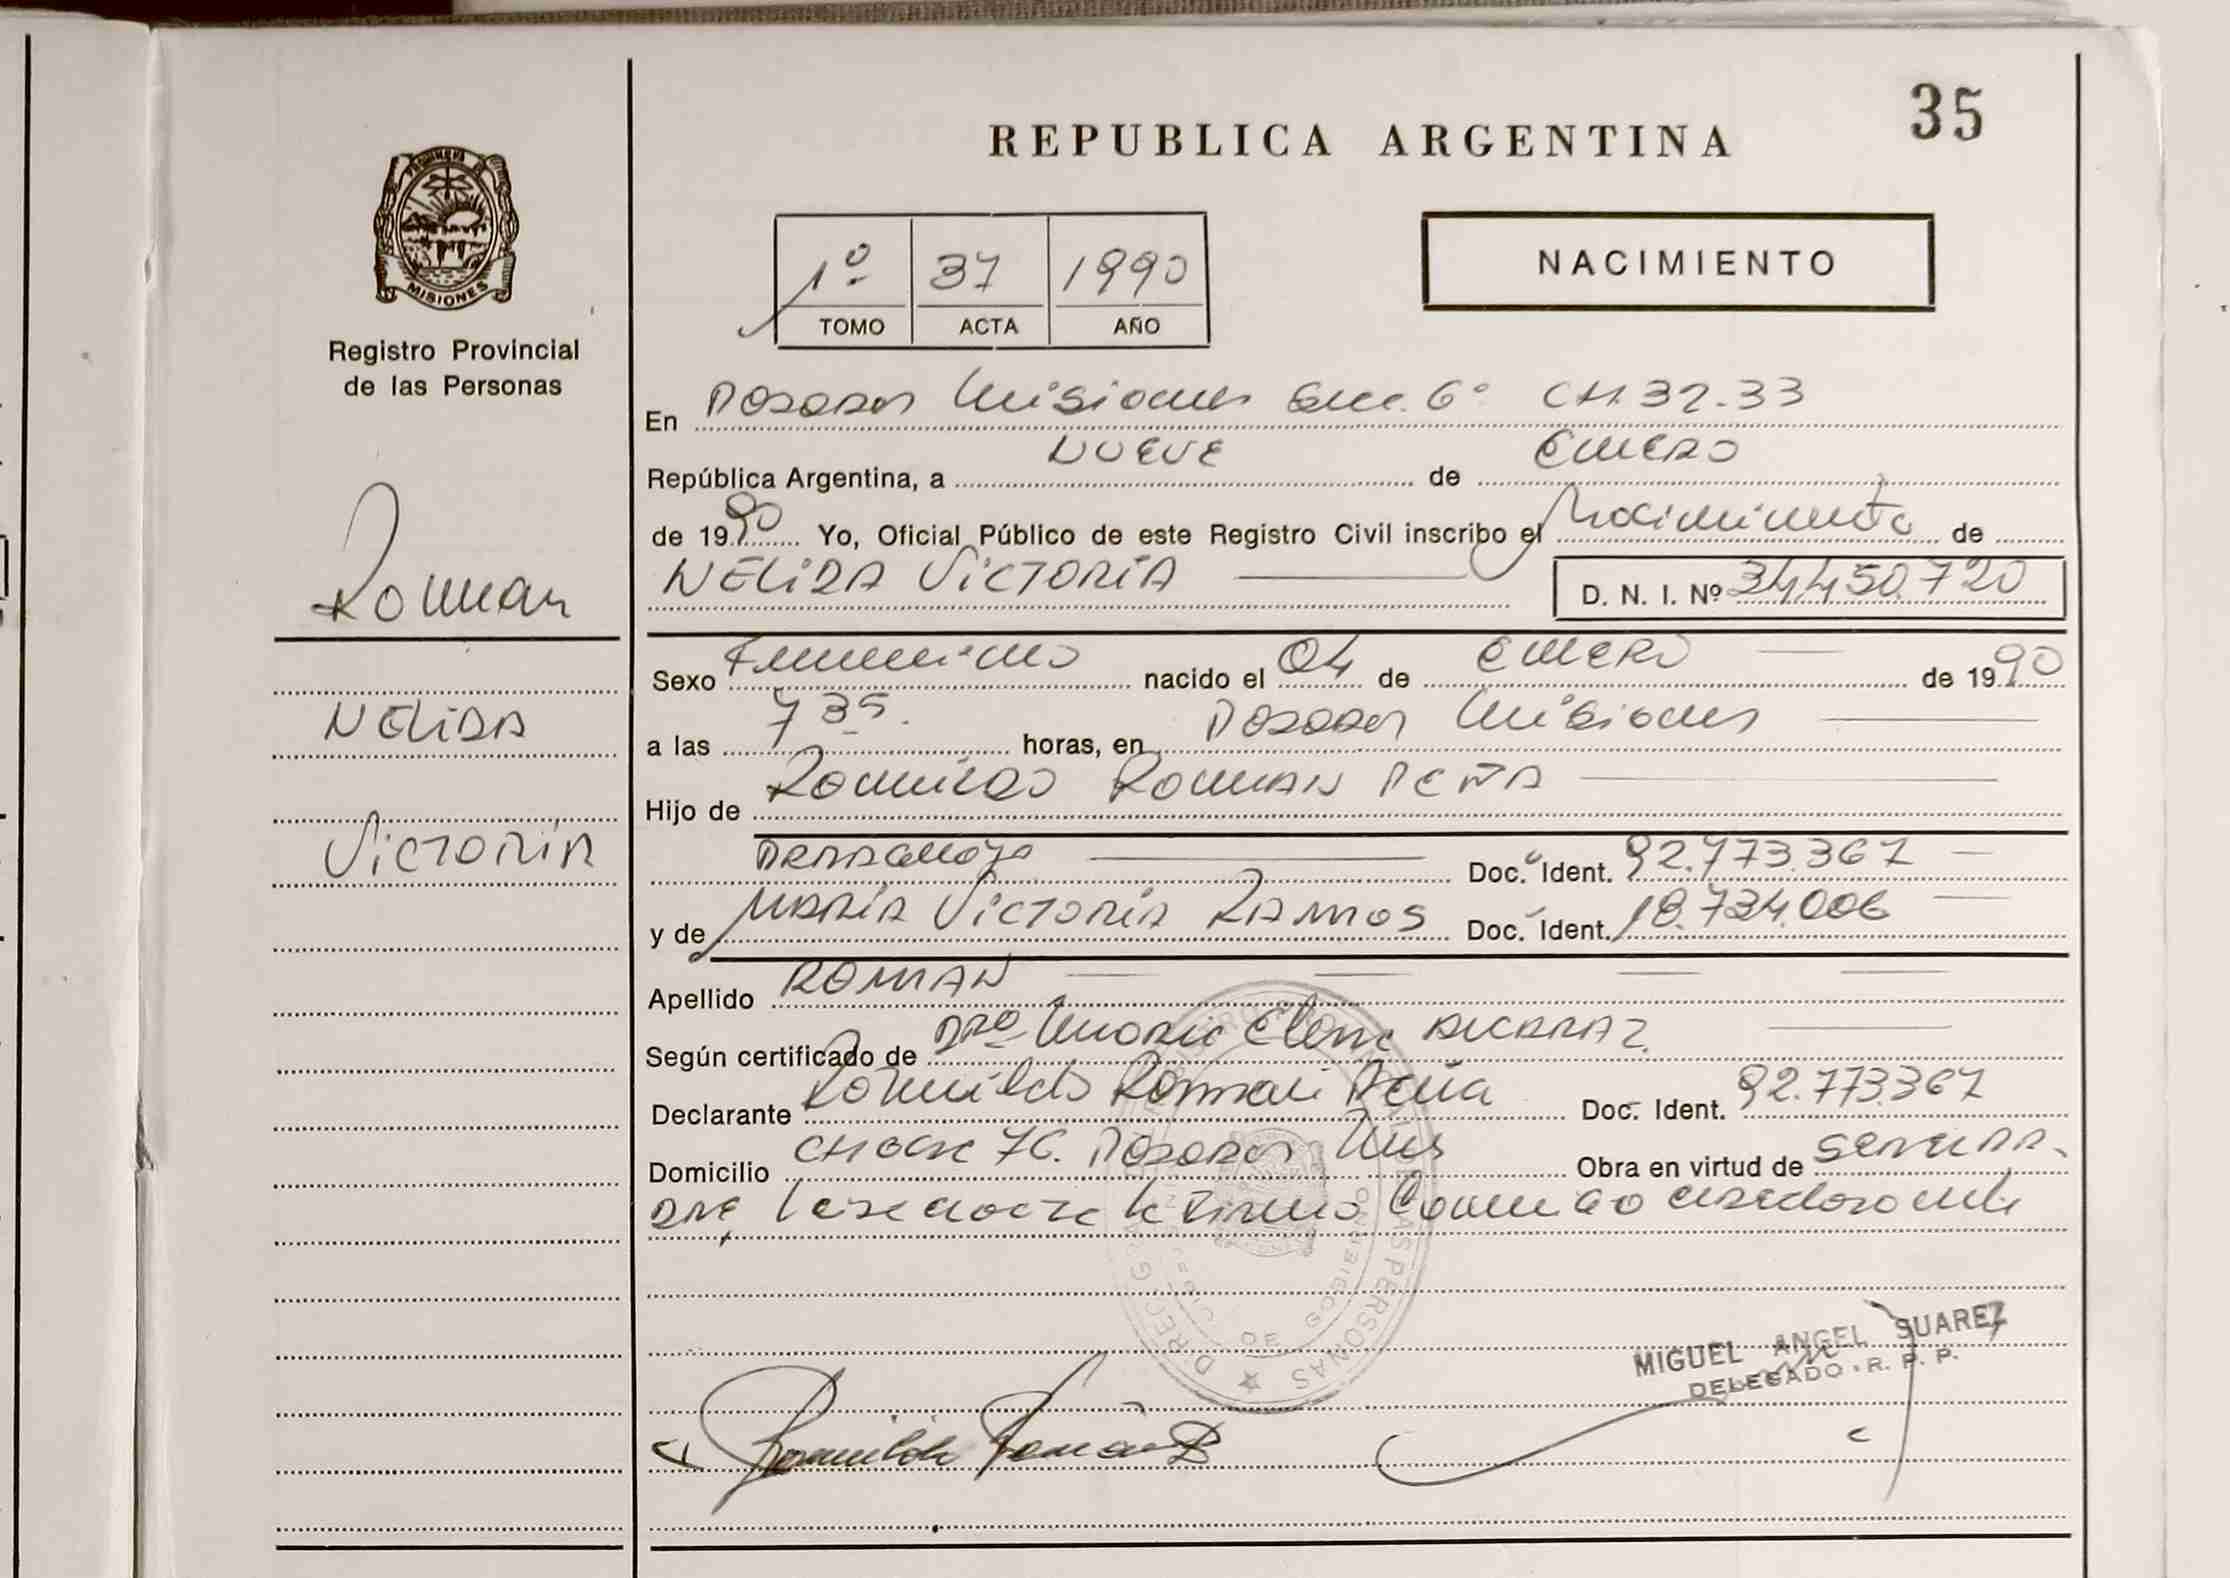 35
REPUBLICA ARGENTINA
NACIMIENTO
PROVINCIA DE
MISIONES
Registro Provincial
de las Personas
1º 37 1990
TOMO ACTA AÑO
En Posadas Misiones Secc. 6º CH. 32-33
República Argentina, a NUEVE de ENERO
de 1990 Yo, Oficial Público de este Registro Civil inscribo el Nacimiento de
NELIDA VICTORIA
D. N. I. Nº 34.450.720
Roman
NELIDA
VICTORIA
Sexo Femenino nacido el 04 de ENERO de 1990
a las 7 35. horas, en Posadas Misiones
Hijo de Romildo ROMAN PEÑA
Doc. Ident. 92.773.367
y de MARIA VICTORIA RAMOS Doc. Ident. 18.734.006
Apellido ROMAN
Según certificado de Dra Maria Elena ALCARAZ
Declarante Romildo Roman Peña Doc. Ident. 92.773.367
Domicilio CHACRA 76. Posadas Mns Obra en virtud de
MIGUEL ANGEL SUAREZ
DELEGADO - R. P. P.